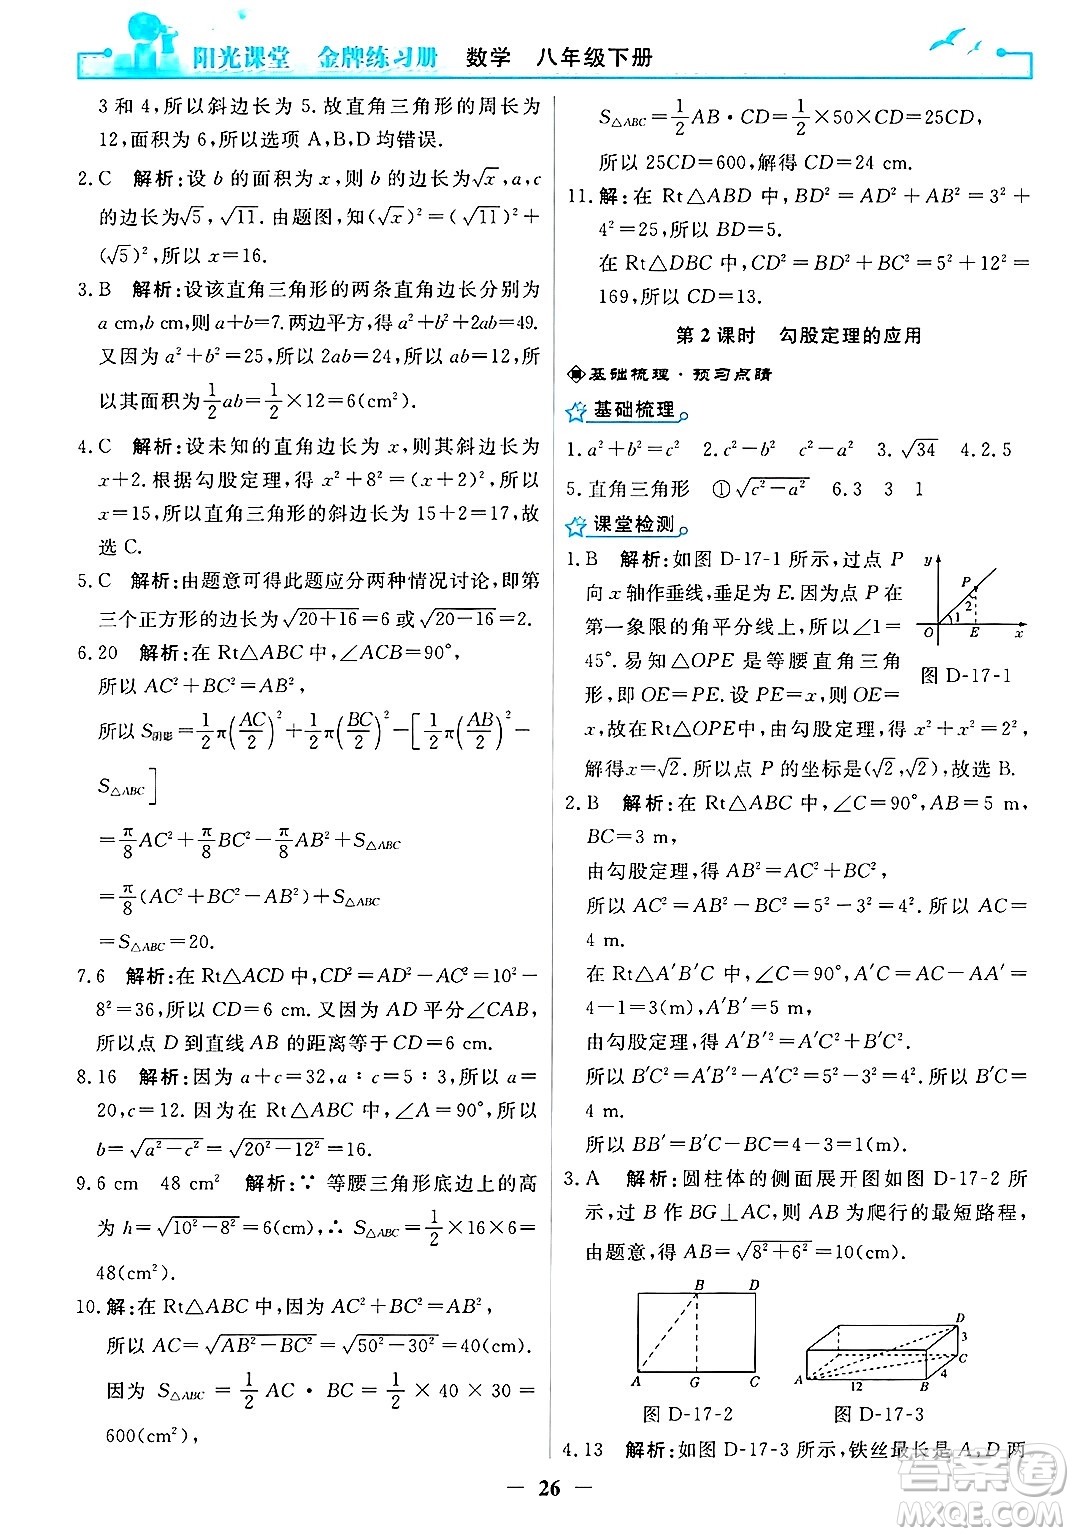 阳光课堂 金牌练习册 数学 八年级下册
3 和 4,所以斜边长为 5. 故直角三角形的周长为
12,面积为 6,所以选项 A,B,D 均错误.
2.C 解析:设 b 的面积为 x,则 b 的边长为√x,a,c
的边长为√5,√11. 由题图,知(√x)²=(√11)²+
(√5)²,所以 x=16.
3.B 解析:设该直角三角形的两条直角边长分别为
a cm,b cm,则 a+b=7.两边平方,得 a²+b²+2ab=49.
又因为 a²+b²=25,所以 2ab=24,所以 ab=12,所
以其面积为 1/2 ab=1/2×12=6(cm²).
4.C 解析:设未知的直角边长为 x,则其斜边长为
x+2. 根据勾股定理,得 x²+8²=(x+2)²,所以
x=15,所以直角三角形的斜边长为 15+2=17,故
选 C.
5.C 解析:由题意可得此题应分两种情况讨论,即第
三个正方形的边长为√(20+16)=6 或√(20-16)=2.
6.20 解析:在 Rt△ABC 中,∠ACB=90°,
所以 AC²+BC²=AB²,
所以 S阴影=1/2π(AC/2)²+1/2π(BC/2)²-[1/2π(AB/2)²-
S△ABC]
=π/8 AC²+π/8 BC²-π/8 AB²+S△ABC
=π/8(AC²+BC²-AB²)+S△ABC
=S△ABC=20.
7.6 解析:在 Rt△ACD 中,CD²=AD²-AC²=10²-
8²=36,所以 CD=6 cm. 又因为 AD 平分∠CAB,
所以点 D 到直线 AB 的距离等于 CD=6 cm.
8.16 解析:因为 a+c=32,a∶c=5∶3,所以 a=
20,c=12. 因为在 Rt△ABC 中,∠A=90°,所以
b=√(a²-c²)=√(20²-12²)=16.
9.6 cm 48 cm² 解析:∵ 等腰三角形底边上的高
为 h=√(10²-8²)=6(cm),∴ S△ABC=1/2×16×6=
48(cm²).
10.解:在 Rt△ABC 中,因为 AC²+BC²=AB²,
所以 AC=√(AB²-BC²)=√(50²-30²)=40(cm).
因为 S△ABC=1/2 AC·BC=1/2×40×30=
600(cm²),
S△ABC=1/2 AB·CD=1/2×50×CD=25CD,
所以 25CD=600,解得 CD=24 cm.
11.解:在 Rt△ABD 中,BD²=AD²+AB²=3²+
4²=25,所以 BD=5.
在 Rt△DBC 中,CD²=BD²+BC²=5²+12²=
169,所以 CD=13.
第 2 课时 勾股定理的应用
基础梳理·预习点睛
基础梳理
1.a²+b²=c² 2.c²-b² c²-a² 3.√34 4.2.5
5.直角三角形 ①√(c²-a²) 6.3 3 1
课堂检测
1.B 解析:如图 D-17-1 所示,过点 P
向 x 轴作垂线,垂足为 E. 因为点 P 在
第一象限的角平分线上,所以∠1=
45°. 易知△OPE 是等腰直角三角
形,即 OE=PE. 设 PE=x,则 OE=
x,故在Rt△OPE中,由勾股定理,得 x²+x²=2²,
解得x=√2. 所以点 P 的坐标是(√2,√2),故选 B.
y P 2 1 O E x
图 D-17-1
2.B 解析:在 Rt△ABC 中,∠C=90°,AB=5 m,
BC=3 m,
由勾股定理,得 AB²=AC²+BC²,
所以 AC²=AB²-BC²=5²-3²=4². 所以 AC=
4 m.
在 Rt△A′B′C 中,∠C=90°,A′C=AC-AA′=
4-1=3(m),A′B′=5 m,
由勾股定理,得 A′B′²=A′C²+B′C².
所以 B′C²=A′B′²-A′C²=5²-3²=4². 所以 B′C=
4 m.
所以 BB′=B′C-BC=4-3=1(m).
3.A 解析:圆柱体的侧面展开图如图 D-17-2 所
示,过 B 作 BG⊥AC,则 AB 为爬行的最短路程,
由题意,得 AB=√(8²+6²)=10(cm).
B D
A G C
图 D-17-2
D 3 C 4 A 12 B
图 D-17-3
4.13 解析:如图 D-17-3 所示,铁丝最长是 A,D 两
— 26 —
答案圈
MXQE.COM